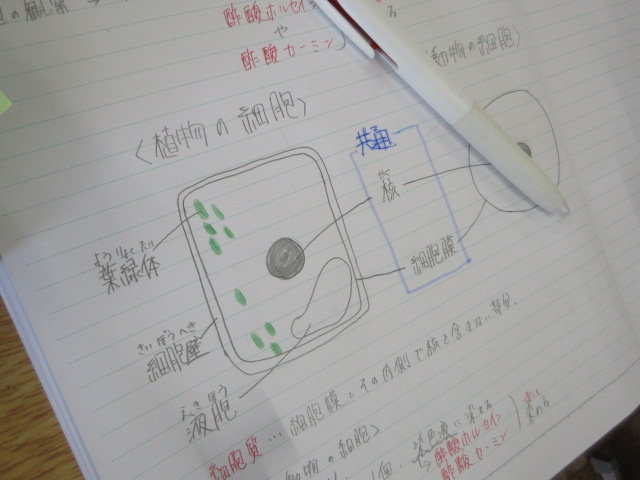 の観察 →
酢酸オルセイン
や
酢酸カーミン
動物の細胞〉
〈植物の細胞〉
共通
かく
核
ようりょくたい
葉緑体
細胞膜
さいぼうへき
細胞壁
えきほう
液胞
細胞質…細胞膜とその内側で核を含まない部分.
物の細胞〉
1個. 染色液に染まる
→酢酸オルセイン
酢酸カーミン
赤く
染める